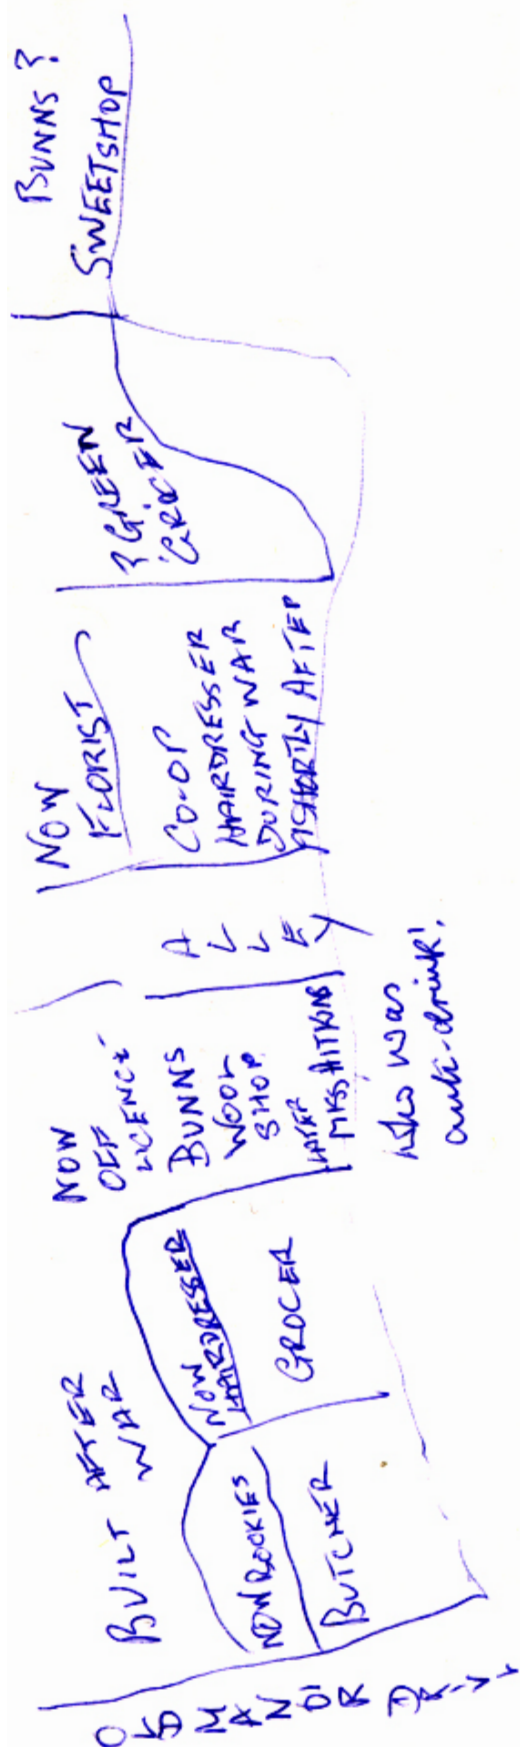 OLD MANOR DRIVE
BUILT AFTER
WAR
NOW BOOKIES
BUTCHER
NOW
HAIRDRESSER
GROCER
NOW
OFF
LICENCE
BUNNS
WOOL
SHOP
LATER
MISS AITKINS
who was
anti-drink!
ALLEY
NOW
FLORIST
CO-OP
HAIRDRESSER
DURING WAR
& SHORTLY AFTER
? GREEN
GROCER
BUNNS ?
SWEETSHOP